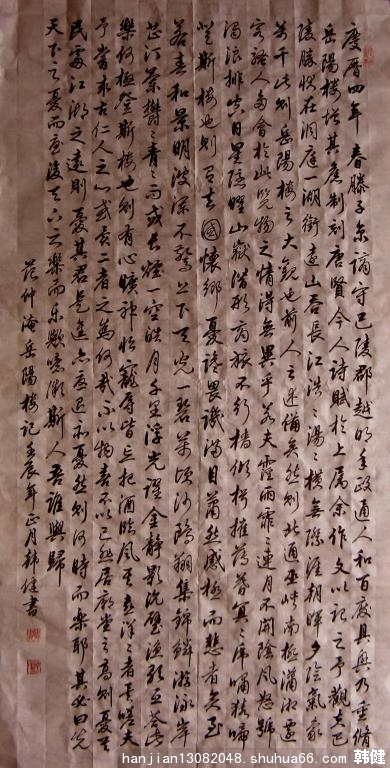 慶曆四年春滕子京謫守巴陵郡越明年政通人和百廢具興乃重脩
岳陽樓增其舊制刻唐賢今人詩賦於上屬余作文以記之予觀夫巴
陵勝狀在洞庭一湖銜遠山吞長江浩浩湯湯橫無際涯朝暉夕陰氣象
萬千此則岳陽樓之大觀也前人之述備矣然則北通巫峽南極瀟湘遷
客騷人多會於此覽物之情得無異乎若夫霪雨霏霏連月不開陰風怒號
濁浪排空日星隱曜山嶽潛形商旅不行檣傾楫摧薄暮冥冥虎嘯猿啼
登斯樓也則有去國懷鄉憂讒畏譏滿目蕭然感極而悲者矣至
若春和景明波瀾不驚上下天光一碧萬頃沙鷗翔集錦鱗游泳岸
芷汀蘭鬱鬱青青而或長煙一空皓月千里浮光躍金靜影沉璧漁歌互答此
樂何極登斯樓也則有心曠神怡寵辱皆忘把酒臨風其喜洋洋者矣嗟夫
予嘗求古仁人之心或異二者之為何哉不以物喜不以己悲居廟堂之高則憂其
民處江湖之遠則憂其君是進亦憂退亦憂然則何時而樂耶其必曰先
天下之憂而憂後天下之樂而樂歟噫微斯人吾誰與歸
范仲淹岳陽樓記壬辰年正月韓健書
hanjian13082048.shuhua66.com 韩健